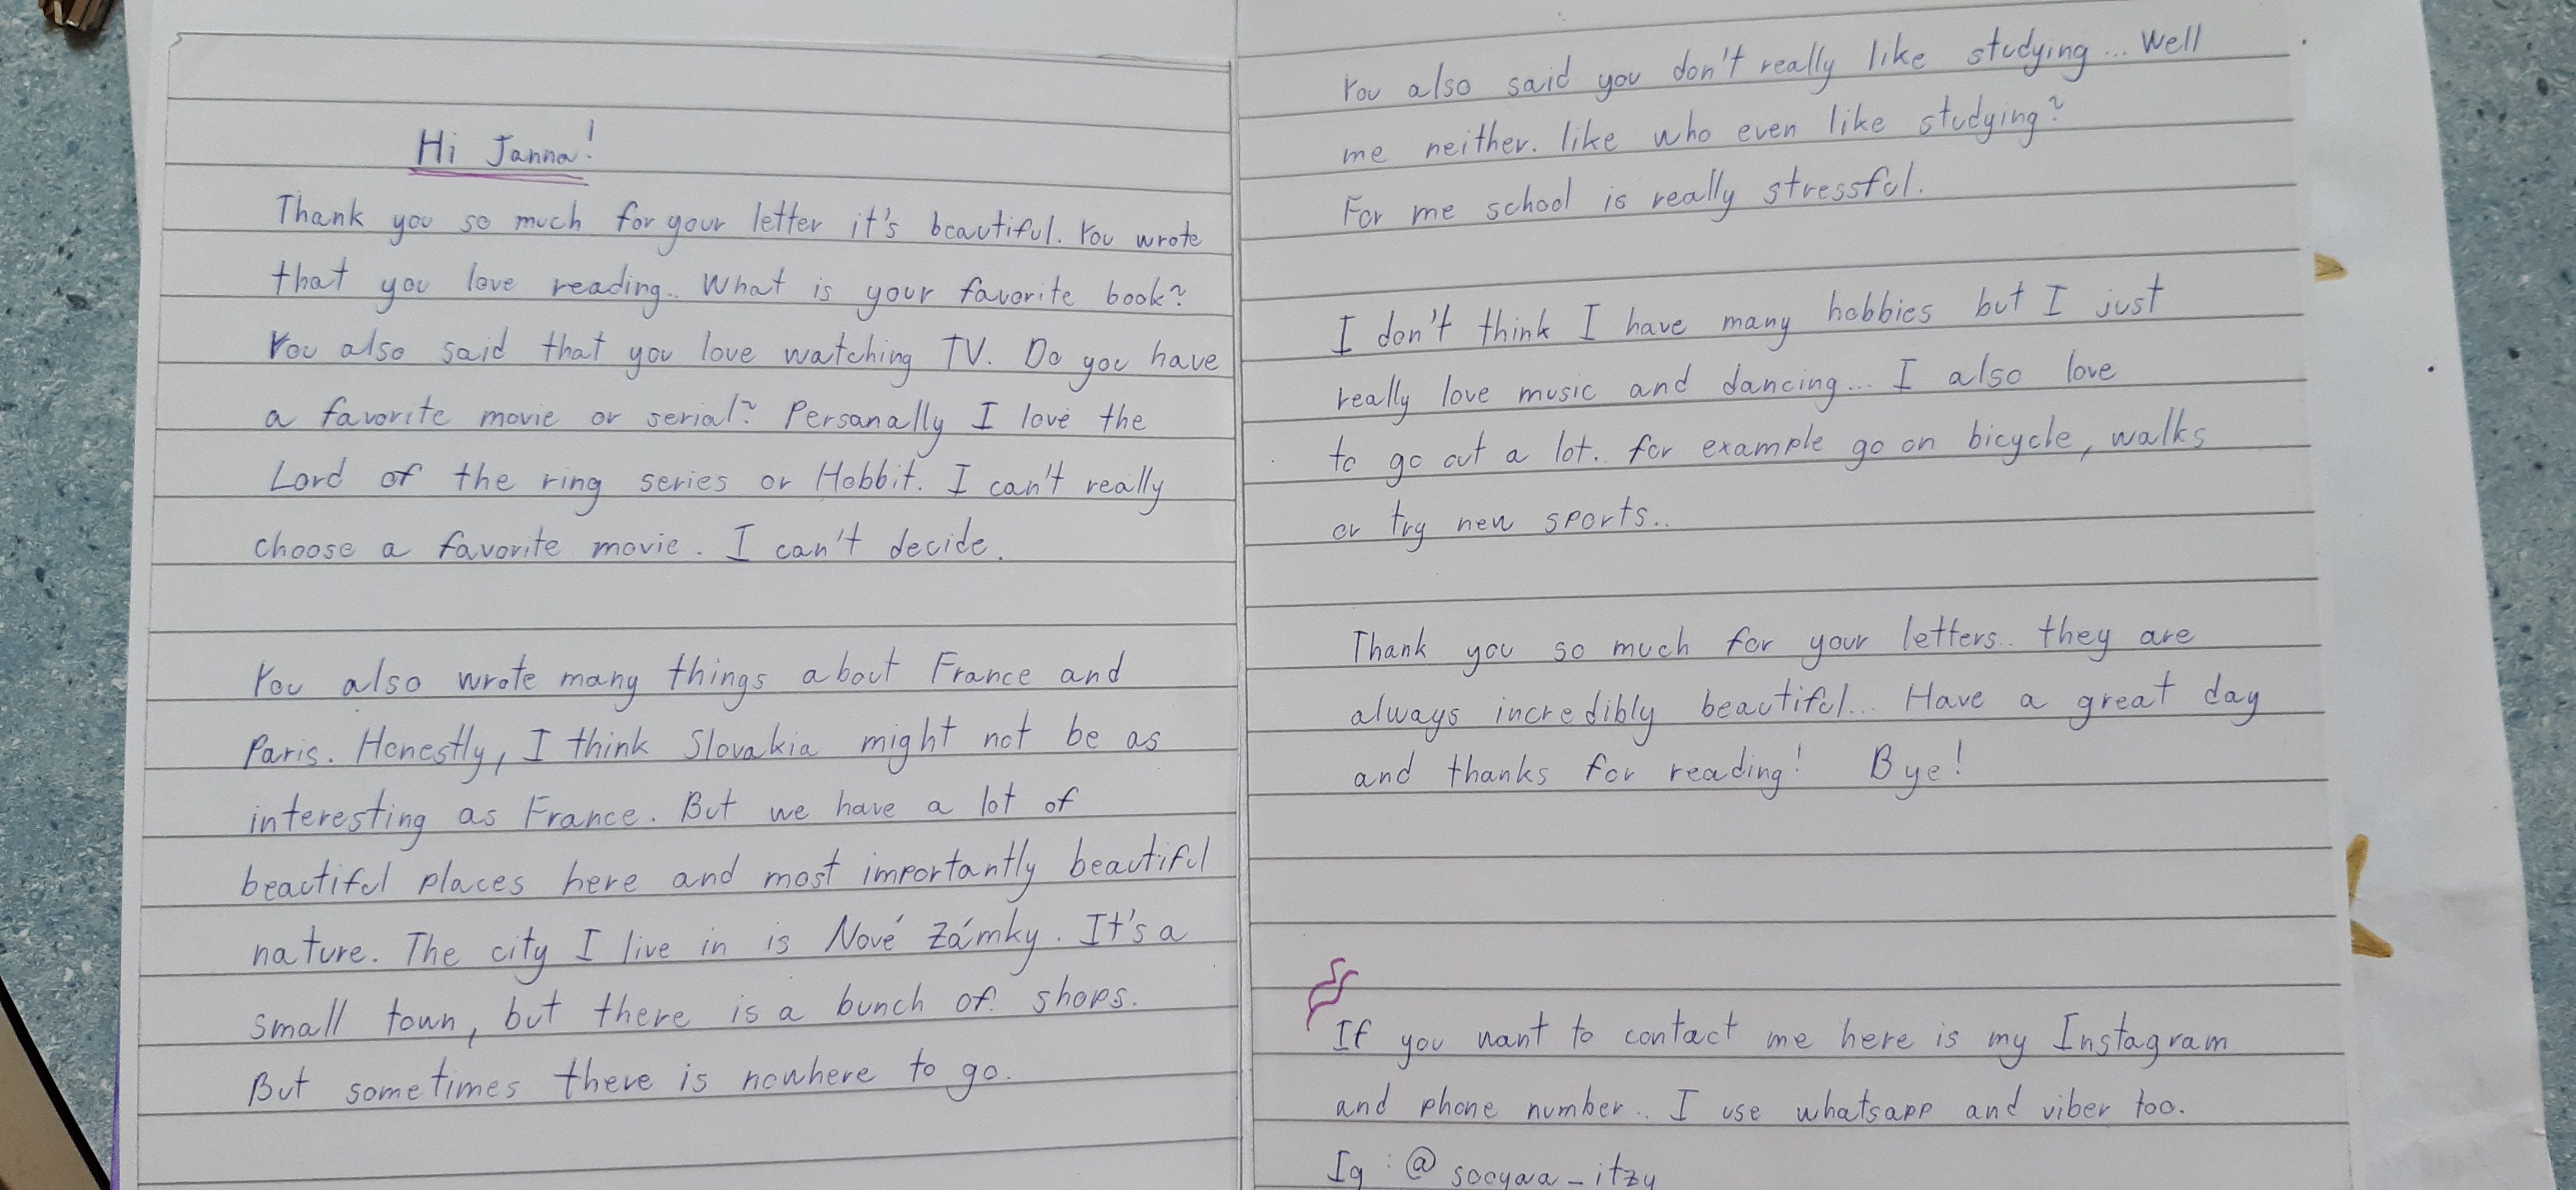 Hi Janna!
Thank you so much for your letter it's beautiful. You wrote
that you love reading.. What is your favorite book?
You also said that you love watching TV. Do you have
a favorite movie or serial? Persanally I love the
Lord of the ring series or Hobbit. I can't really
choose a favorite movie. I can't decide.
You also wrote many things about France and
Paris. Honestly, I think Slovakia might not be as
interesting as France. But we have a lot of
beautiful places here and most importantly beautiful
nature. The city I live in is Nové Zámky. It's a
small town, but there is a bunch of shops.
But sometimes there is nowhere to go.
You also said you don't really like studying... Well
me neither. like who even like studying?
For me school is really stressful.
I don't think I have many hobbies but I just
really love music and dancing... I also love
to go out a lot.. for example go on bicycle, walks
or try new sports..
Thank you so much for your letters.. they are
always incredibly beautiful... Have a great day
and thanks for reading! Bye!
If you want to contact me here is my Instagram
and phone number.. I use whatsapp and viber too.
Ig : @ sooyaa_itzy